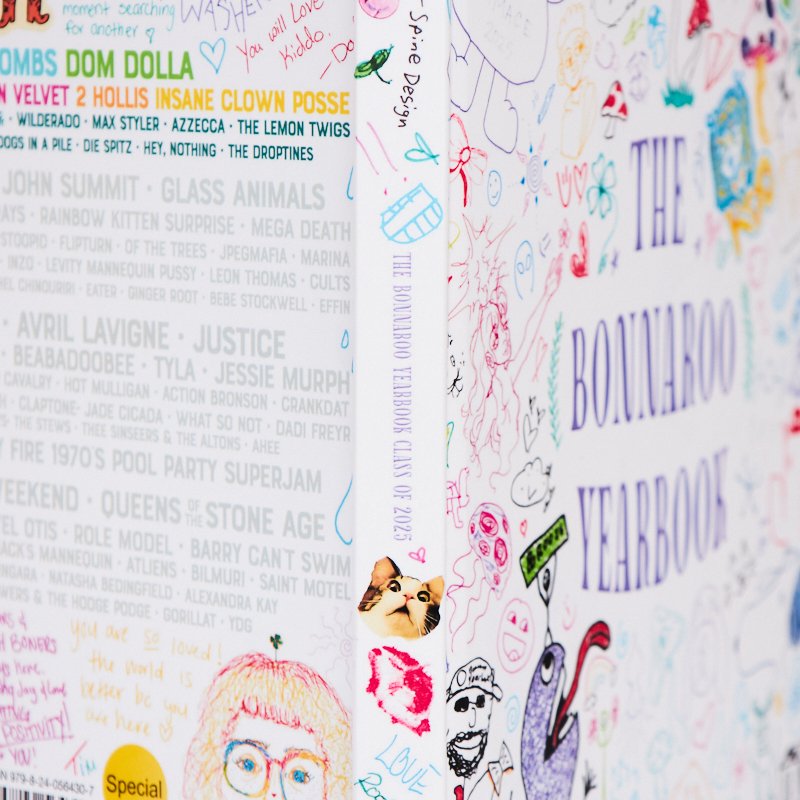 moment searching
for another
WASHER
You will Love
Kiddo.
OMBS DOM DOLLA
N VELVET 2 HOLLIS INSANE CLOWN POSSE
· WILDERADO · MAX STYLER · AZZECCA · THE LEMON TWIGS
DOGS IN A PILE · DIE SPITZ · HEY, NOTHING · THE DROPTINES
JOHN SUMMIT · GLASS ANIMALS
AYS · RAINBOW KITTEN SURPRISE · MEGA DEATH
STOOPID · FLIPTURN · OF THE TREES · JPEGMAFIA · MARINA
· INZO · LEVITY MANNEQUIN PUSSY · LEON THOMAS · CULTS
HEL CHINOURIRI · EATER · GINGER ROOT · BEBE STOCKWELL · EFFIN
· AVRIL LAVIGNE · JUSTICE
· BEABADOOBEE · TYLA · JESSIE MURPH
CAVALRY · HOT MULLIGAN · ACTION BRONSON · CRANKDAT
H · CLAPTONE· JADE CICADA · WHAT SO NOT · DADI FREYR
· THE STEWS · THEE SINSEERS & THE ALTONS · AHEE
Y FIRE 1970'S POOL PARTY SUPERJAM
WEEKEND · QUEENS OF THE STONE AGE
EL OTIS · ROLE MODEL · BARRY CAN'T SWIM
ACK'S MANNEQUIN · ATLIENS · BILMURI · SAINT MOTEL
NGARA · NATASHA BEDINGFIELD · ALEXANDRA KAY
OWERS & THE HODGE PODGE · GORILLAT · YDG
you are so loved!
the world is
better bc you
are here
POSITIVITY!
YOU!
Tim
N 979-8-24-056430-7
Special
Spine Design
THE BONNAROO YEARBOOK CLASS OF 2025
LOVE
THE
BONNAROO
YEARBOOK